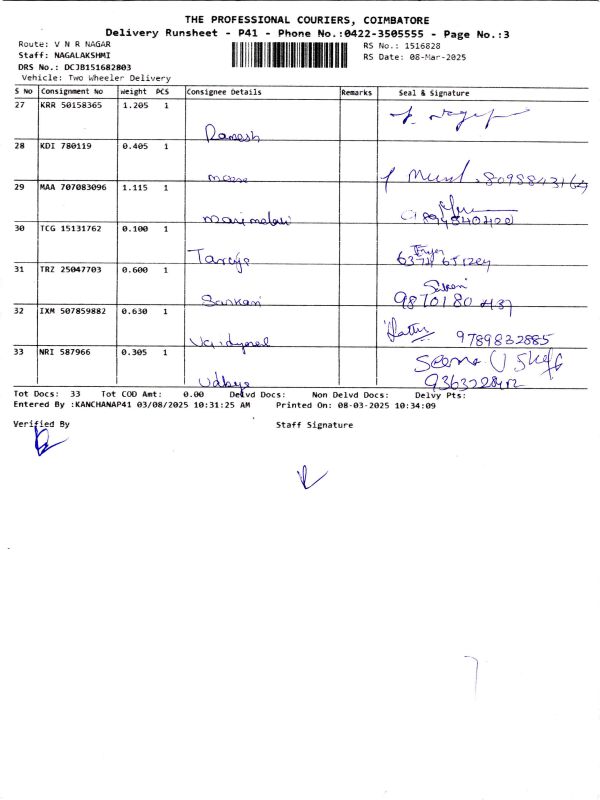 THE PROFESSIONAL COURIERS, COIMBATORE
Delivery Runsheet - P41 - Phone No.:0422-3505555 - Page No.:3
Route: V N R NAGAR
RS No.: 1516828
Staff: NAGALAKSHMI
RS Date: 08-Mar-2025
DRS No.: DCJB151682803
Vehicle: Two Wheeler Delivery
S No Consignment No Weight PCS Consignee Details Remarks Seal & Signature
27 KRR 50158365 1.205 1
Ramesh
28 KDI 780119 0.405 1
8098843164
29 MAA 707083096 1.115 1
30 TCG 15131762 0.100 1
31 TRZ 25047703 0.600 1
Sankari
32 IXM 507859882 0.630 1
9789832885
33 NRI 587966 0.305 1
Udaya
Tot Docs: 33 Tot COD Amt: 0.00 Delvd Docs: Non Delvd Docs: Delvy Pts:
Entered By :KANCHANAP41 03/08/2025 10:31:25 AM Printed On: 08-03-2025 10:34:09
Verified By Staff Signature